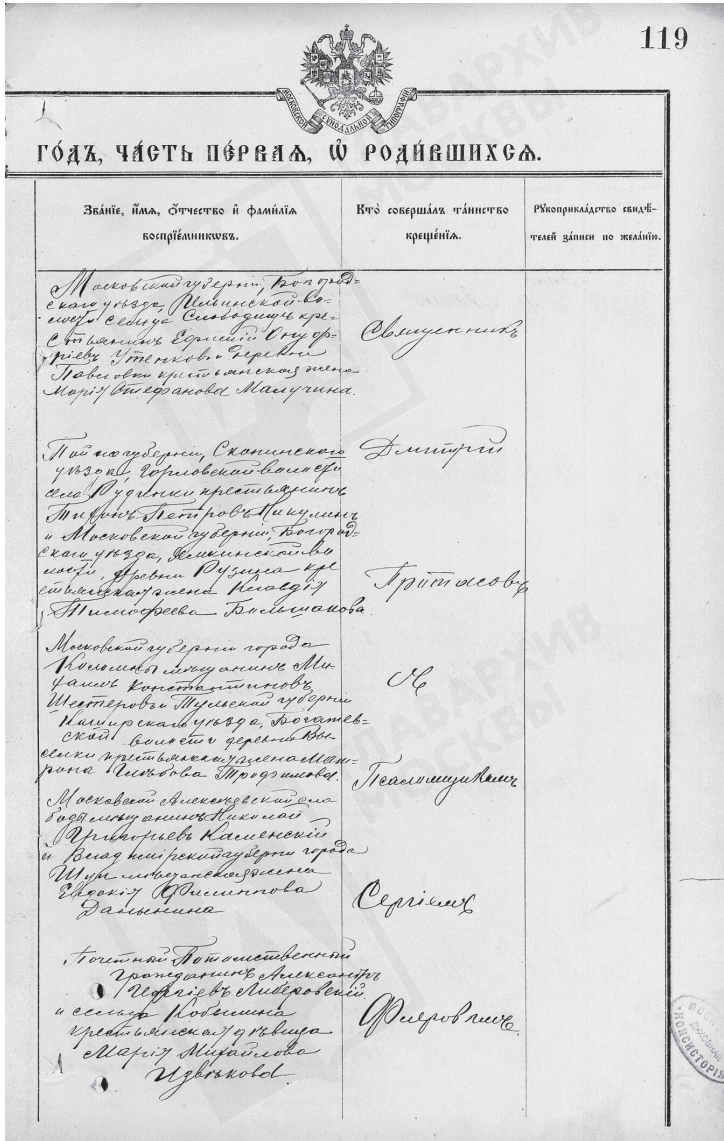 119
МОСКОВСКОЙ СѴНОДАЛЬНОЙ ТИПОГРАФІИ
ГО́ДЪ, ЧА́СТЬ ПЕ́РВАЯ, Ѡ҆ РОДИ́ВШИХСЯ.
Зва́нїе, и҆́мя, ѻ҆́тчество и҆ фами́лїя
воспрїе́мникѡвъ.
Кто̀ соверша́лъ та́инство
креще́нїя.
Рꙋкоприкла́дство свидѣ́-
телей за́писи по жела́нїю.
Московской губерніи, Богород-
скаго уѣзда, Ильинской во-
лости сельца Слободищъ кре-
стьянинъ Ефимій Онуф-
ріевъ Утенковъ и деревни
Павловки крестьянская жена
Марія Стефанова Малучина.
Священникъ
Той же губерніи, Скопинскаго
уѣзда, Горловской волости
села Рудинки крестьянинъ
Тихонъ Петровъ Никулинъ
и Московской губерніи, Богород-
скаго уѣзда, Ямкинской во-
лости, деревни Рузина кре-
стьянская жена Клавдія
Тимофеева Большакова.
Димитрій
Протасовъ
Московской губерніи города
Коломны мѣщанинъ Ми-
хаилъ Константиновъ
Шестеровъ и Тульской губерніи
Каширскаго уѣзда, Богатев-
ской волости деревни Вы-
селки крестьянская жена Мат-
рона Глѣбова Трофимова.
съ
Псаломщикомъ
Московский Алексѣевской сло
боды мѣщанинъ Николай
Григорьевъ Каменскій
и Владимірской губерніи города
Шуи мѣщанская жена
Евдокія Филиппова
Даньшина
Сергіемъ
Почетный Потомственный
гражданинъ Александръ
Георгіевъ Либеровскій
и сельца Кобылина
крестьянская дѣвица
Марія Михайлова
Извѣкова
Флеровымъ
ГЛАВАРХИВ
МОСКВЫ
ГЛАВАРХИВ
МОСКВЫ
КОНСИСТОРІЯ